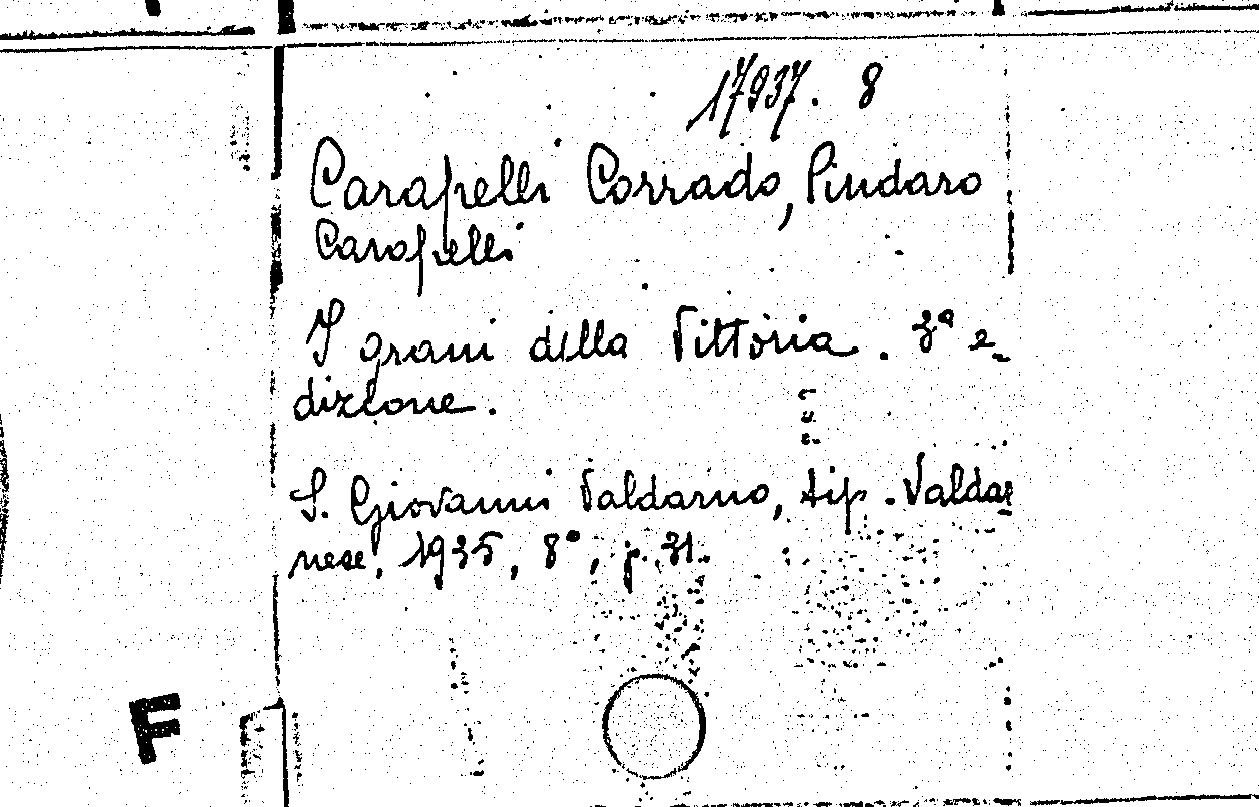 17937. 8
Carapelli Corrado, Pindaro
Carapelli
I grani della Vittoria. 3ª e-
dizione.
S. Giovanni Valdarno, tip. Valdar
nese, 1935, 8°, p. 31.
F